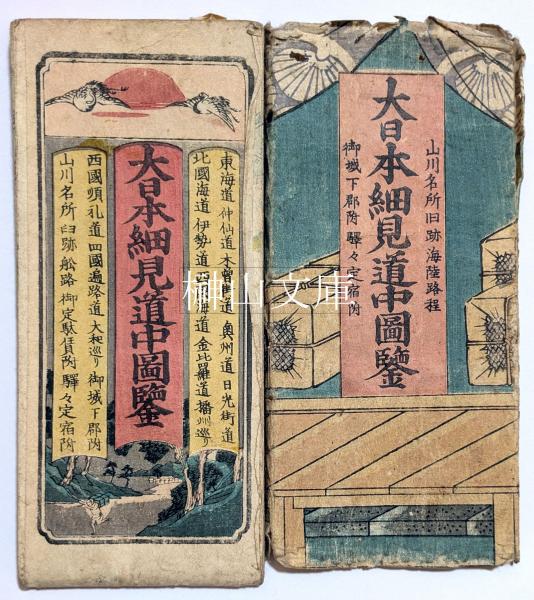 東海道 仲仙道 木曽街道 奥州道 日光街道
北國海道 伊勢道 西海道 金比羅道 播州巡り
大日本細見道中圖鑒
西國順礼道 四國遍路道 大和巡り 御城下郡附
山川名所 旧跡 舩路 御定駄賃附 驛々定宿附
山川名所旧跡 海陸路程
大日本細見道中圖鑒
御城下郡附 驛々定宿附
榊山文庫